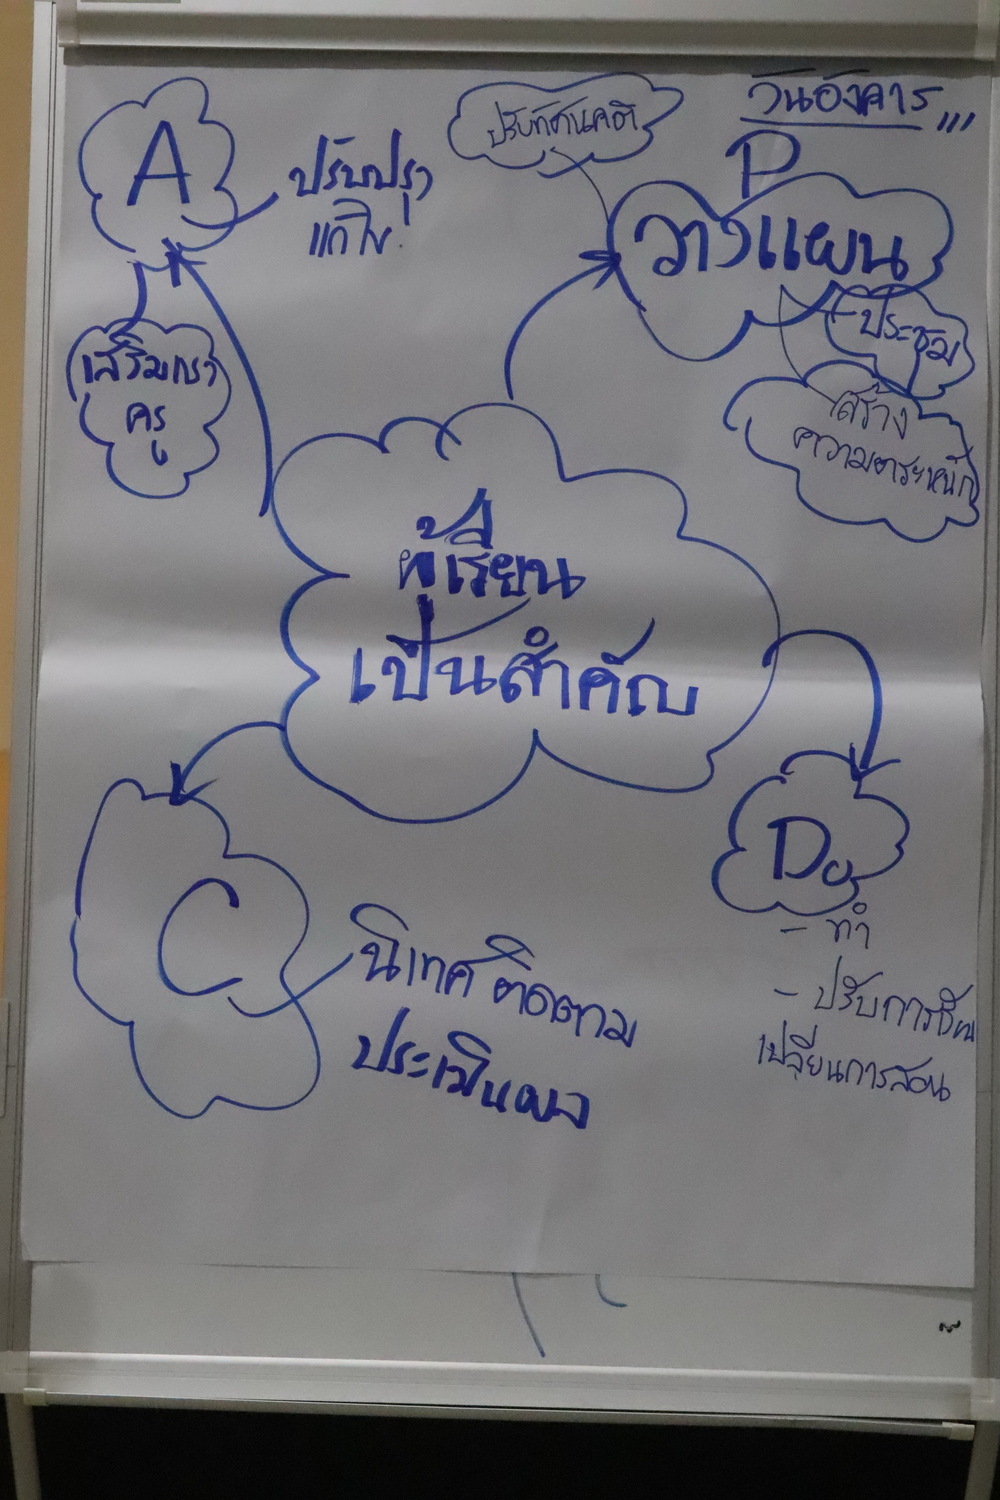 วันอังคาร,,,
ปรับทัศนคติ
P
วางแผน
ประชุม
สร้าง
ความตระหนัก
A
ปรับปรุง
แก้ไข.
เสริมแรง
ครู
ผู้เรียน
เป็นสำคัญ
Do
- ทำ
- ปรับการเรียน
เปลี่ยนการสอน
C
นิเทศ ติดตาม
ประเมินผล